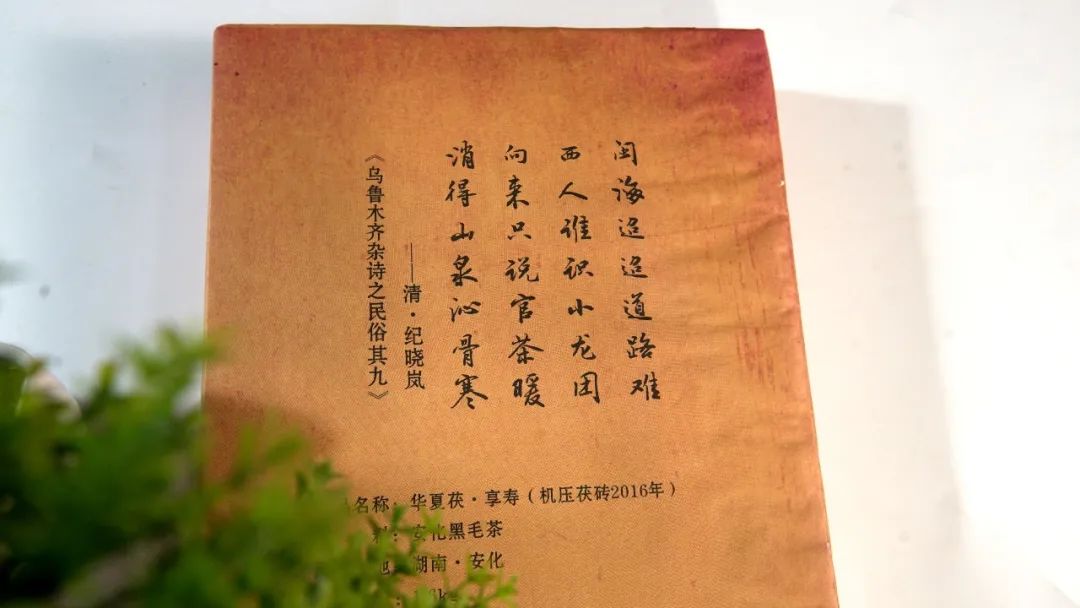 闽海迢迢道路难
西人谁识小龙团
向来只说官茶暖
消得山泉沁骨寒
——清·纪晓岚
《乌鲁木齐杂诗之民俗其九》
名称：华夏茯·享寿（机压茯砖2016年）
料：安化黑毛茶
地：湖南·安化